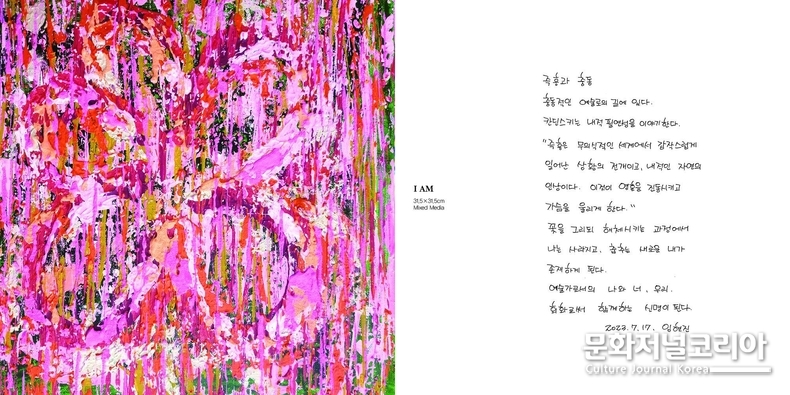 I AM
31.5×31.5cm
Mixed Media
즉흥과 충동
충동적인 예술로의 길에 있다.
칸딘스키는 내적 필연성을 이야기한다.
"즉흥은 무의식적인 세계에서 갑작스럽게
일어난 상황의 전개이고, 내적인 자연의
인상이다. 이것이 영혼을 진동시키고
가슴을 울리게 한다."
꽃을 그리되 해체시키는 과정에서
나는 사라지고, 춤추는 새로운 내가
존재하게 된다.
예술가로서의 나와 너, 우리.
회화로써 함께하는 신명이 된다.
2023. 7. 17. 임혜진
문화저널코리아
Culture Journal Korea